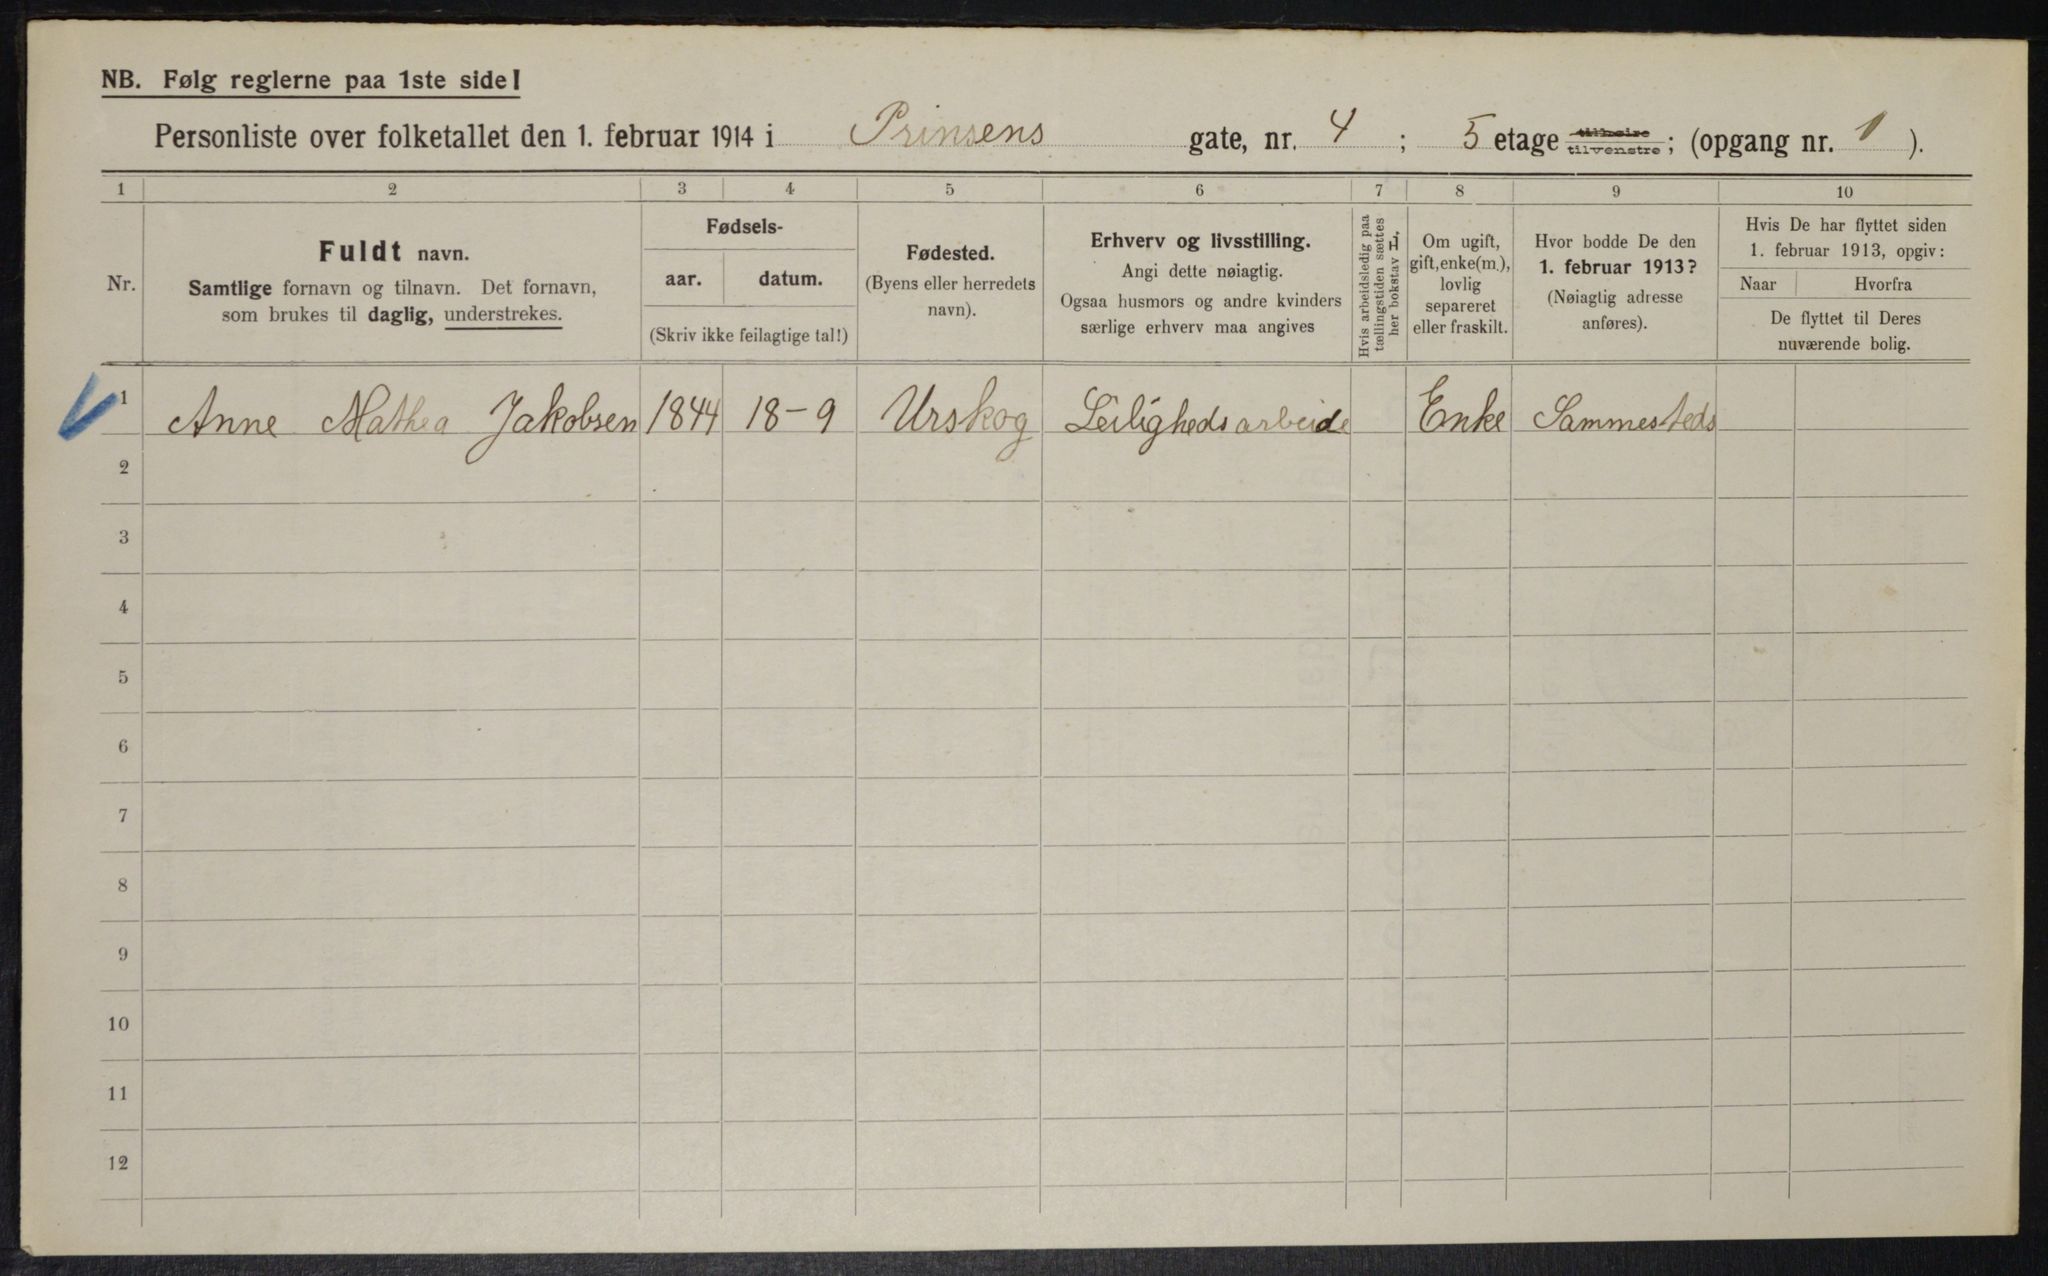 NB. Følg reglerne paa 1ste side!
Personliste over folketallet den 1. februar 1914 i Prinsens gate, nr. 4 ; 5 etage tilhøire tilvenstre; (opgang nr. 1 ).
1 2 3 4 5 6 7 8 9 10
Nr.
Fuldt navn.
Samtlige fornavn og tilnavn. Det fornavn,
som brukes til daglig, understrekes.
Fødsels-
aar. datum.
(Skriv ikke feilagtige tal!)
Fødested.
(Byens eller herredets
navn).
Erhverv og livsstilling.
Angi dette nøiagtig.
Ogsaa husmors og andre kvinders
særlige erhverv maa angives
Hvis arbeidsledig paa
tællingstiden sættes
her bokstav L.
Om ugift,
gift, enke(m.),
lovlig
separeret
eller fraskilt.
Hvor bodde De den
1. februar 1913?
(Nøiagtig adresse
anføres).
Hvis De har flyttet siden
1. februar 1913, opgiv:
Naar Hvorfra
De flyttet til Deres
nuværende bolig.
1 Anne Mathea Jakobsen 1844 18-9 Urskog Leilighedsarbeide Enke Sammesteds
2
3
4
5
6
7
8
9
10
11
12